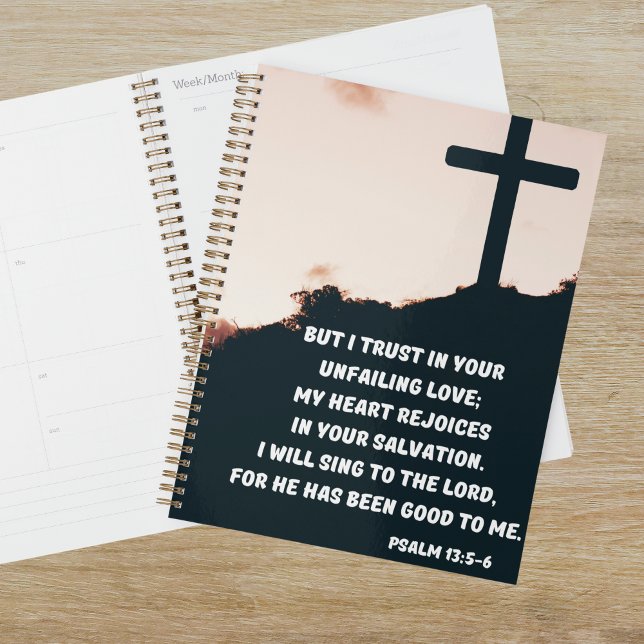 Week/Month:
mon
thu
sat
sun
BUT I TRUST IN YOUR
UNFAILING LOVE;
MY HEART REJOICES
IN YOUR SALVATION.
I WILL SING TO THE LORD,
FOR HE HAS BEEN GOOD TO ME.
PSALM 13:5-6